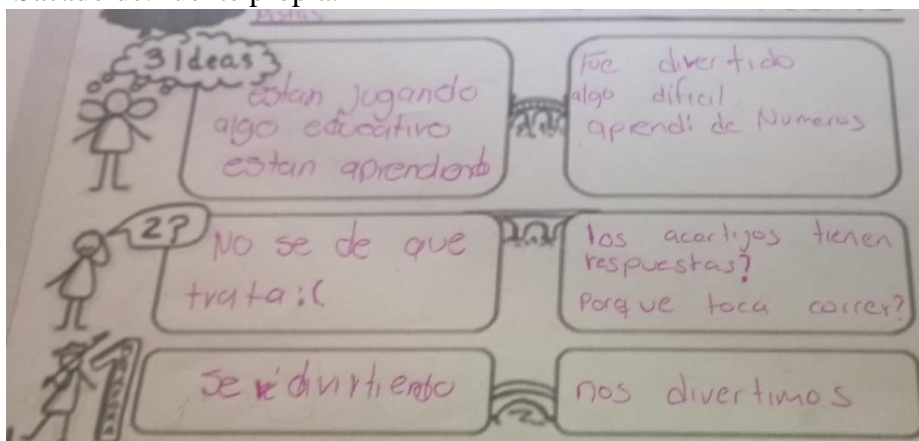 Pistas
3 Ideas
están jugando
algo educativo
estan aprendiendo
Fue divertido
algo dificil
aprendi de Numeros
2?
No se de que
trata :(
los acertijos tienen
respuestas?
Porque toca correr?
1
se ve divirtiendo
nos divertimos